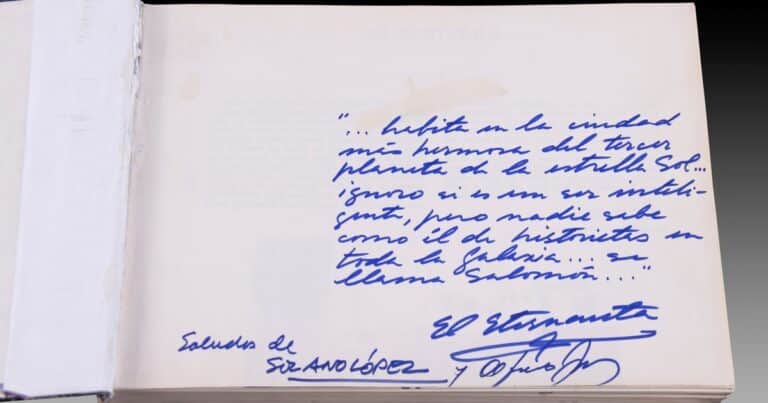 "... habita en la ciudad
más hermosa del tercer
planeta de la estrella Sol...
ignoro si es un ser inteli-
gente, pero nadie sabe
como él de historietas en
toda la galaxia... se
llama Salomón..."
El Eternauta
Saludos de
SOLANO LÓPEZ y